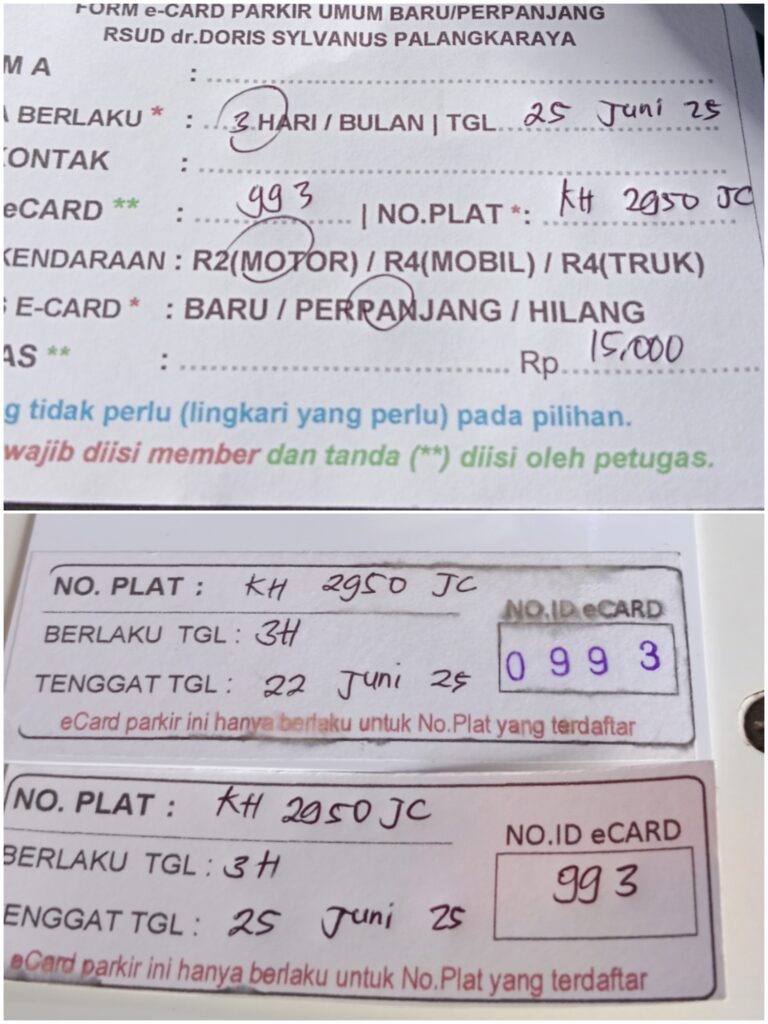 FORM e-CARD PARKIR UMUM BARU/PERPANJANG
RSUD dr.DORIS SYLVANUS PALANGKARAYA
M A :
A BERLAKU * : 3 HARI / BULAN | TGL 25 Juni 25
KONTAK :
eCARD ** : 993 | NO.PLAT *: KH 2950 JC
KENDARAAN : R2(MOTOR) / R4(MOBIL) / R4(TRUK)
S E-CARD * : BARU / PERPANJANG / HILANG
AS ** : Rp 15,000
g tidak perlu (lingkari yang perlu) pada pilihan.
wajib diisi member dan tanda (**) diisi oleh petugas.
NO. PLAT : KH 2950 JC
NO.ID eCARD
BERLAKU TGL : 3H
0993
TENGGAT TGL : 22 Juni 25
eCard parkir ini hanya berlaku untuk No.Plat yang terdaftar
NO. PLAT : KH 2950 JC
NO.ID eCARD
BERLAKU TGL : 3H
993
ENGGAT TGL : 25 Juni 25
eCard parkir ini hanya berlaku untuk No.Plat yang terdaftar